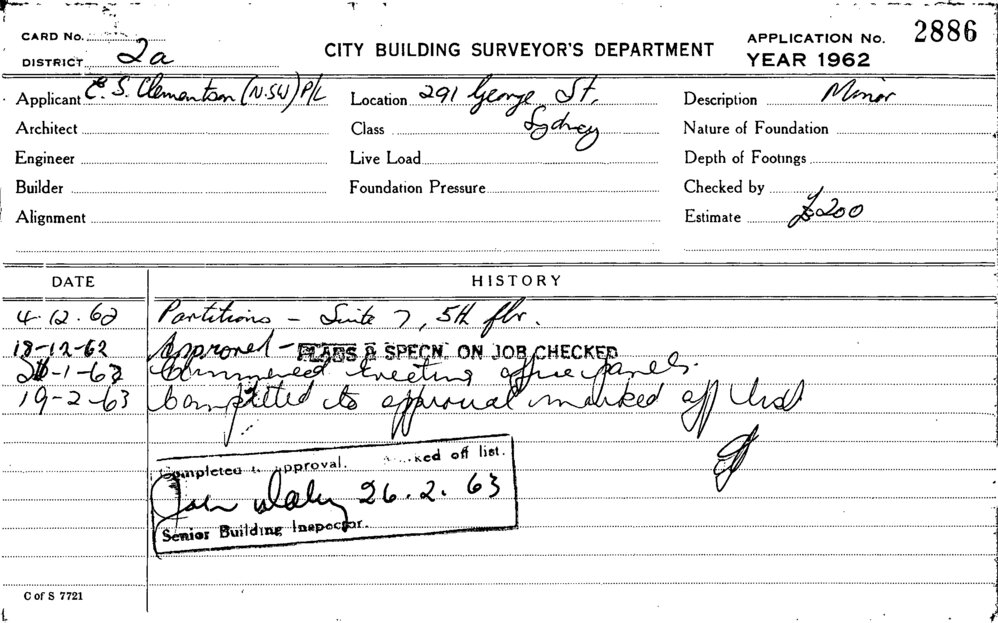 CARD No.
CITY BUILDING SURVEYOR'S DEPARTMENT
APPLICATION No. 2886
DISTRICT 2a
YEAR 1962
Applicant E. S. Clementson (N.SW) P/L
Location 291 George St,
Sydney
Description Minor
Architect
Class
Nature of Foundation
Engineer
Live Load
Depth of Footings
Builder
Foundation Pressure
Checked by
Alignment
Estimate £200
DATE HISTORY
4.12.62 Partitions - Suite 7, 5th flr.
18-12-62 Approved - PLANS & SPECN. ON JOB CHECKED
-1-63 Commenced Erecting office panels.
19-2-63 Completed to approval marked off list
Completed to approval. Marked off list.
John 26.2.63
Senior Building Inspector.
C of S 7721